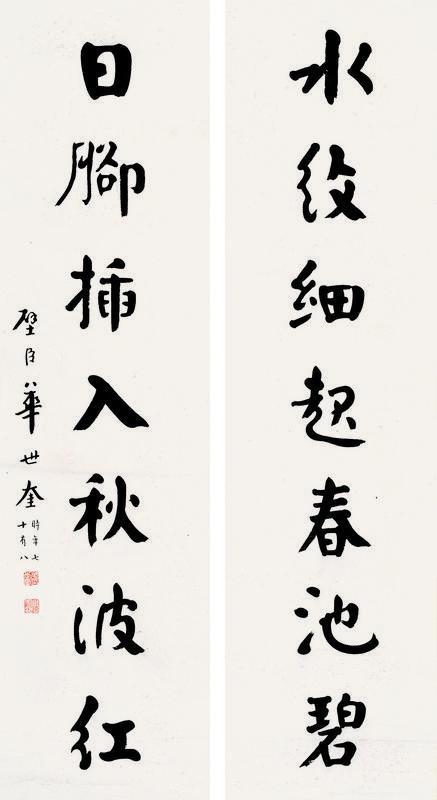 水紋細起春池碧
日腳插入秋波紅
璧臣華世奎
時年七
十有八